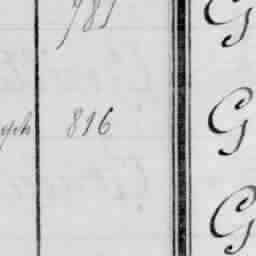 781 G
816 G
G